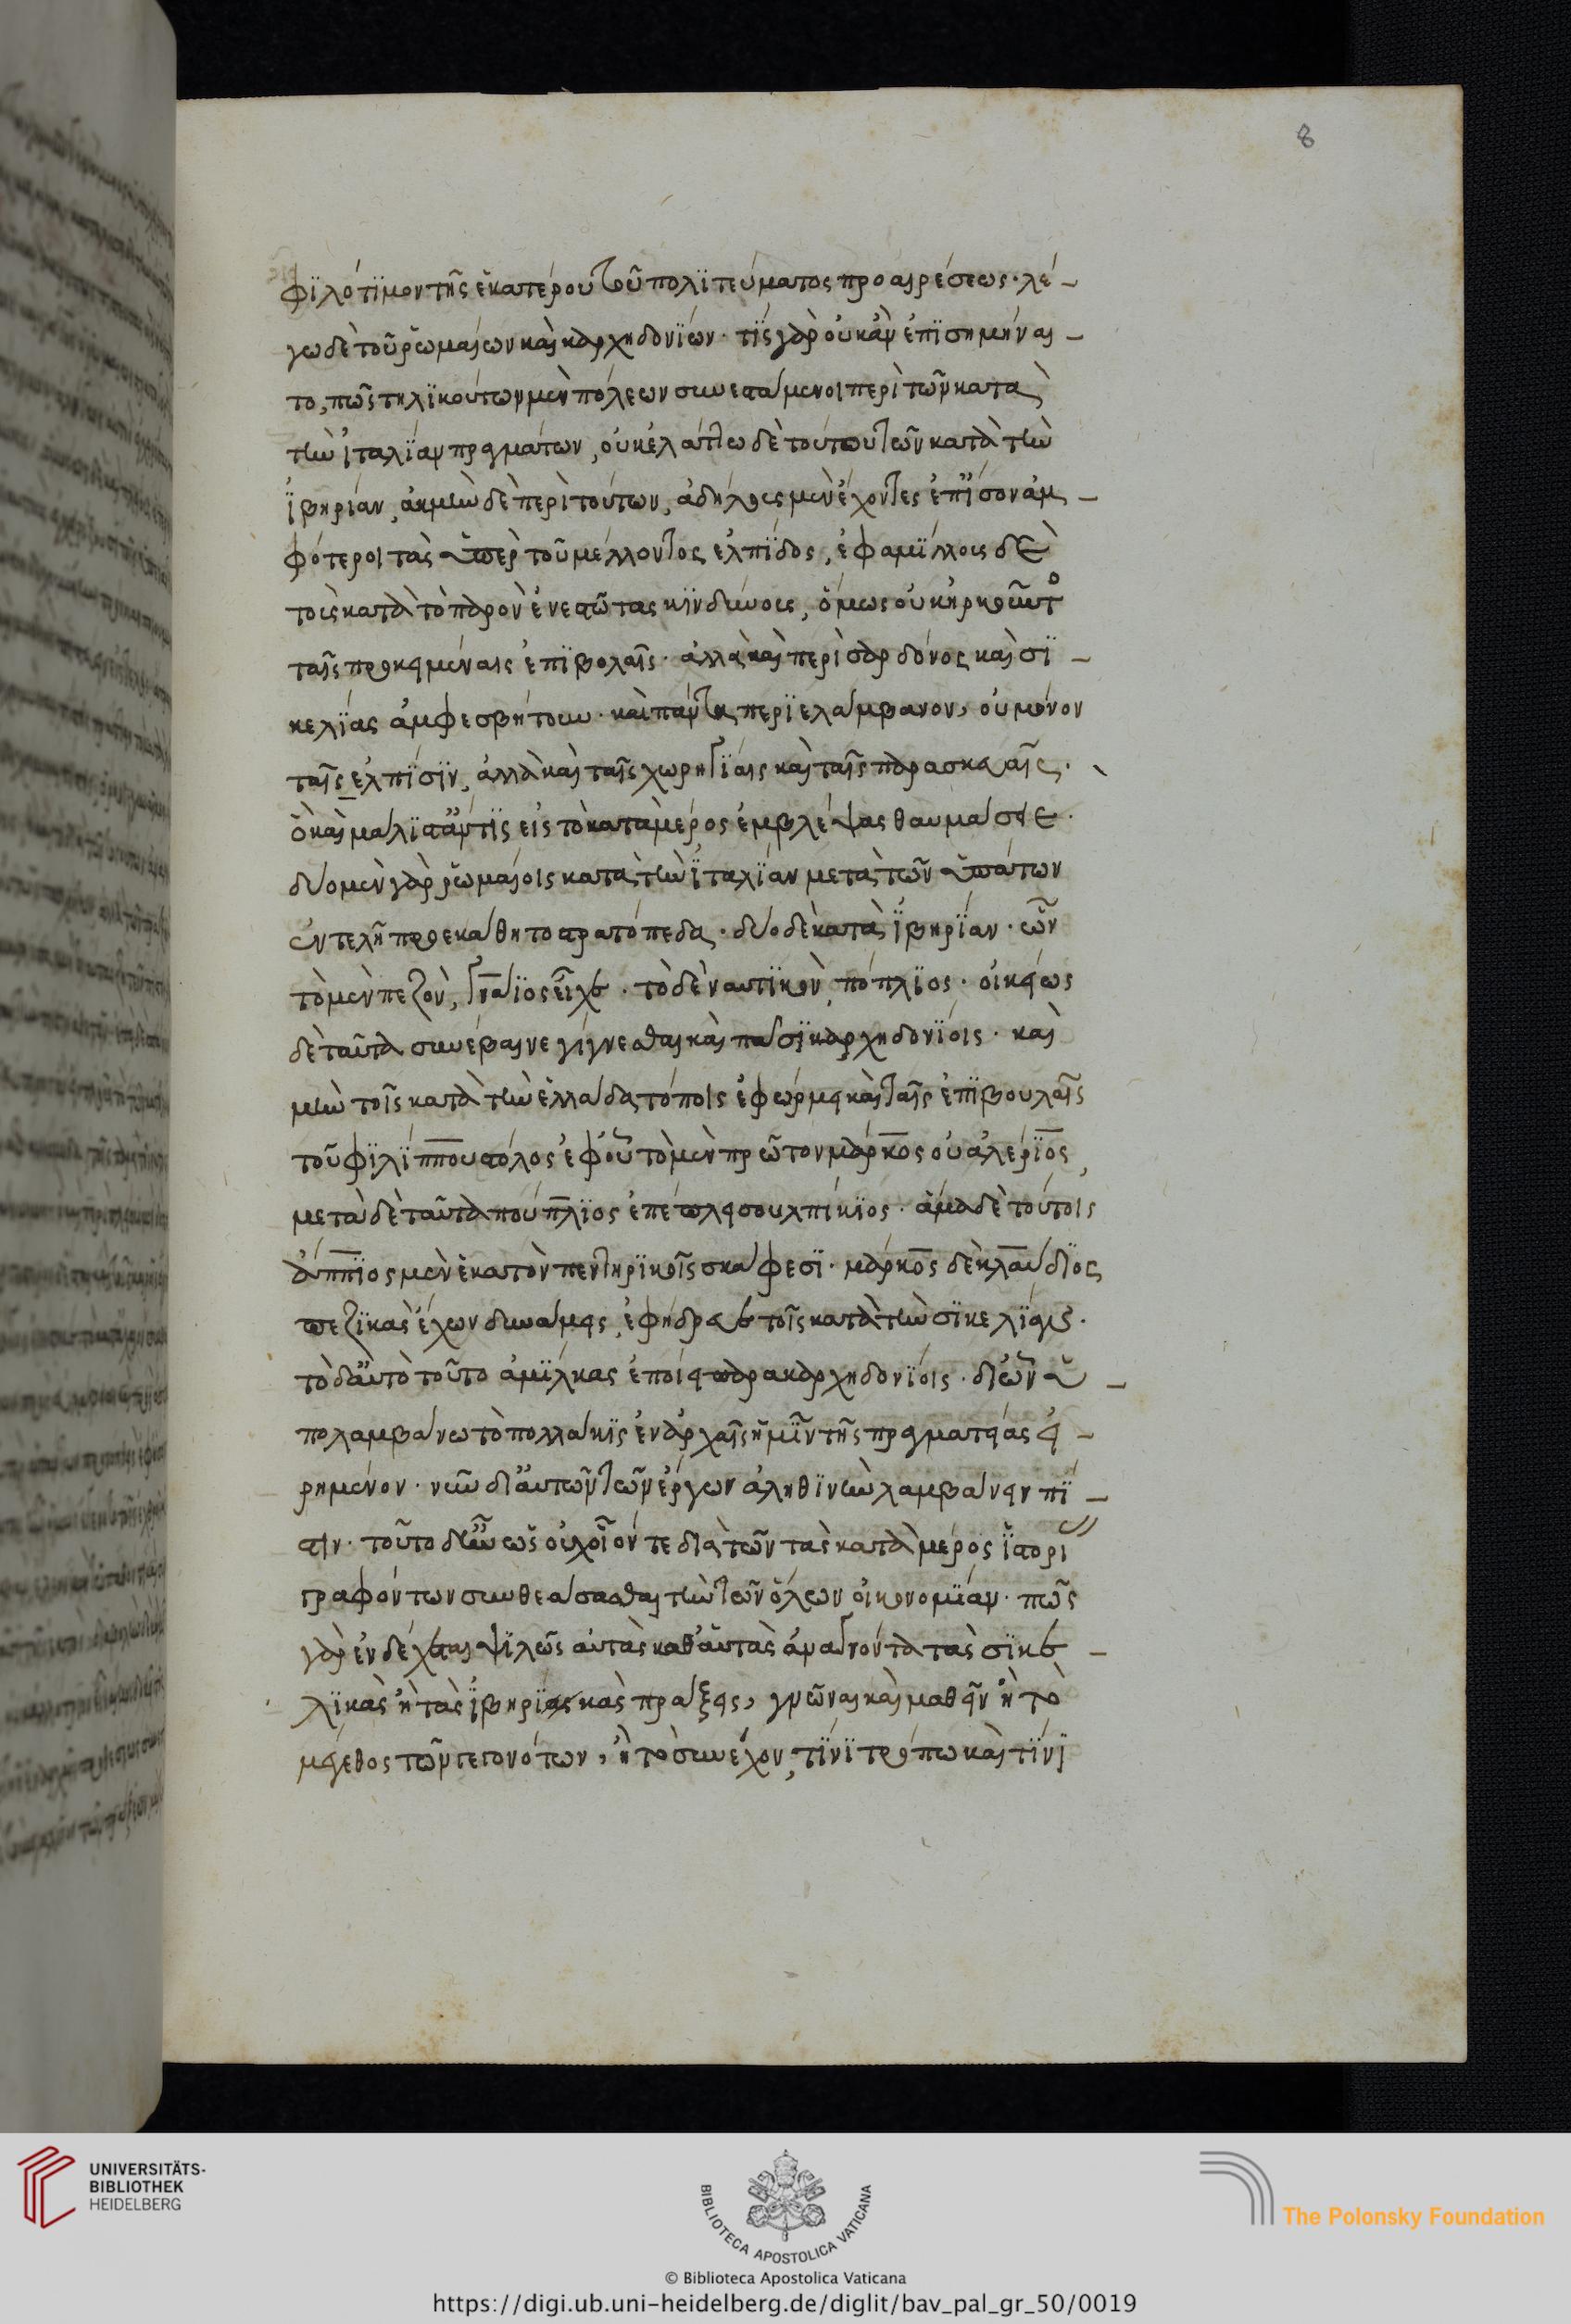 8
φϊλότϊμον τῆς ἑκατέρου τοῦ πολϊτεύματος προαιρέσεως· λέ-
γω δὲ τοῦ ῥωμαίων καὶ καρχηδονϊίων· τίς γὰρ οὐκ ἂν ἐπϊσημήναι-
το, πῶς τηλϊκούτων μὲν πόλεων συνεστάμενοι περὶ τῶν κατὰ
τὴν ἰταλϊαν πραγμάτων, οὐκ ἐλάττω δὲ τούτου τῶν κατὰ τὴν
ἰβηρίαν, ἀκμὴν δὲ περὶ τούτων, ἀδήλους μὲν ἔχοντες ἐπΐσον ἀμ-
φότεροι τὰς ὑπὲρ τοῦ μέλλοντος ἐλπϊδος, ἐφαμϊλλοις δὲ
τοῖς κατὰ τὸ παρὸν ἐνεστῶτας κϊνδύνοις, ὅμως οὐκ ἠρκοῦντο
ταῖς προκειμέναις ἐπϊβολαῖς· ἀλλὰ καὶ περὶ σαρδόνος καὶ σϊ-
κελϊας ἀμφεσβήτουν· καὶ πάντα περϊελάμβανον, οὐ μόνον
ταῖς ἐλπϊσϊν, ἀλλὰ καὶ ταῖς χωρηγϊαις καὶ ταῖς παρασκευαῖς.
ὃ καὶ μάλϊστ' ἄν τις εἰς τὸ κατὰ μέρος ἐμβλέψας θαυμάσειε.
δύο μὲν γὰρ ῥωμαίοις κατὰ τὴν ἰταλϊαν μετὰ τῶν ὑπάτων
ἐντελῆ προεκάθητο στρατόπεδα· δύο δὲ κατὰ ἰβηρϊαν· ὧν
τὸ μὲν πεζὸν, γναϊος εἶχε· τὸ δὲ ναυτϊκὸν, πόπλϊος· οἰκείως
δὲ ταῦτα συνέβαινε γίγνεσθαι καὶ πᾶσϊ καρχηδονϊοις· καὶ
μὴν τοῖς κατὰ τὴν ἑλλάδα τόποις ἐφώρμει καὶ ταῖς ἐπϊβουλαῖς
τοῦ φϊλϊππου στόλος ἐφ' οὗ τὸ μὲν πρῶτον μάρκος οὐαλέρϊος,
μετὰ δὲ ταῦτα πούπλϊος ἐπέπλει σουλπίκϊος· ἅμα δὲ τούτοις
ἄππϊος μὲν ἑκατὸν πεντηρϊκοῖς σκάφεσϊ· μάρκος δὲ κλαύδϊος
πεζϊκὰς ἔχων δυνάμεις, ἐφήδρευε τοῖς κατὰ τὴν σϊκελϊαις.
τὸ δ' αὐτὸ τοῦτο ἀμϊλκας ἐποίει παρὰ καρχηδονϊοις· δι' ὧν ὑ-
πολαμβάνω τὸ πολλάκϊς ἐν ἀρχαῖς ἡμῖν τῆς πραγματείας εἰ-
ρημένον· νῦν δι' αὐτῶν τῶν ἔργων ἀληθϊνὴν λαμβάνειν πϊ-
στιν· τοῦτο δ' ἦν ὡς οὐχ οἷόν τε διὰ τῶν τὰς κατὰ μέρος ἱστορι
γραφόντων συνθεάσασθαι τὴν τῶν ὅλων οἰκονομϊαν· πῶς
γὰρ ἐνδέχεται ψϊλῶς αὐτὰς καθ' αὑτὰς ἀναγνόντα τὰς σϊκε-
λϊκὰς ἢ τὰς ἰβηρϊκὰς πράξεις, γνῶναι καὶ μαθεῖν ἢ τὸ
μέγεθος τῶν γεγονότων, ἢ τὸ συνέχον, τϊνϊ τρόπω καὶ τϊνϊ
UNIVERSITÄTS-
BIBLIOTHEK
HEIDELBERG
BIBLIOTECA APOSTOLICA VATICANA
The Polonsky Foundation
© Biblioteca Apostolica Vaticana
https://digi.ub.uni-heidelberg.de/diglit/bav_pal_gr_50/0019